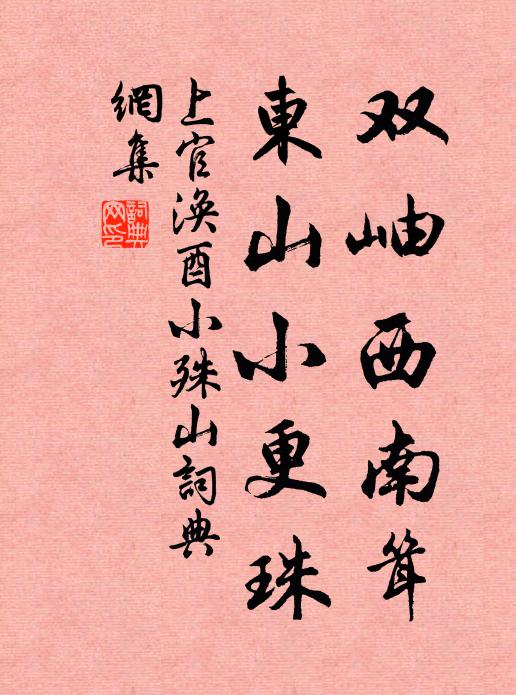 双岫西南耸
東山小更珠
上官涣酉小殊山詞典
網集
詞典
网印